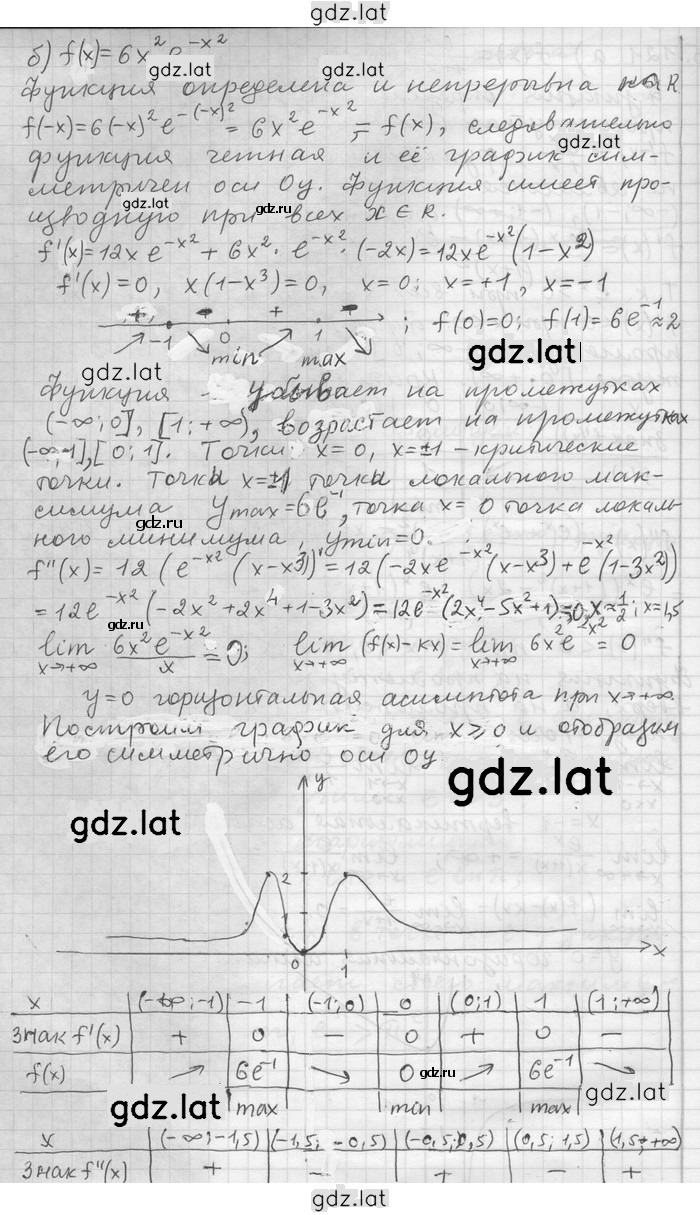 gdz.lat
б) f(x)=6x² e^{-x²}
gdz.lat gdz.lat
Функция определена и непрерывна на R
f(-x)=6(-x)² e^{-(-x)²} = 6x² e^{-x²} = f(x), следовательно
gdz.lat
функция четная и её график сим-
метричен оси Oy. Функция имеет про-
gdz.lat gdz.ru
изводную при всех x∈R.
f'(x)=12x e^{-x²} + 6x² · e^{-x²} · (-2x)=12xe^{-x²}(1-x²)
f'(x)=0, x(1-x³)=0, x=0; x=+1, x=-1
+ - + -
-1 0 1 ; f(0)=0; f(1)=6e^{-1}≈2
min max
gdz.lat gdz.lat
Функция - убывает на промежутках
(-∞;0], [1;+∞), возрастает на промежутках
(-∞;-1],[0;1]. Точки x=0, x=±1 - критические
точки. Точки x=±1 точки локального мак-
симума y max=6e^{-1}, точка x=0 точка локаль-
gdz.ru gdz.lat
ного минимума, y min=0.
f''(x)=12(e^{-x²}(x-x³))'=12(-2xe^{-x²}(x-x³)+e^{-x²}(1-3x²))
gdz.lat gdz.ru
=12e^{-x²}(-2x²+2x⁴+1-3x²)=12e^{-x²}(2x⁴-5x²+1)=0, x≈1/2; x=1,5
lim x→+∞ 6x²e^{-x²}/x=0; lim x→+∞ (f(x)-kx)=lim x→+∞ 6x²e^{-x²}=0
y=0 горизонтальная асимптота при x→+∞
Построим график для x⩾0 и отобразим
его симметрично оси Oy
gdz.lat
gdz.lat
y
2
1
0 1 x
x (-∞;-1) -1 (-1;0) 0 (0;1) 1 (1;+∞)
Знак f'(x) + 0 - 0 + 0 -
f(x) ↗ 6e^{-1} ↘ 0 ↗ 6e^{-1} ↘
gdz.lat gdz.lat
max min max
x (-∞;-1,5) (-1,5;-0,5) (-0,5;0,5) (0,5;1,5) (1,5;+∞)
Знак f''(x) + - + - +
gdz.lat